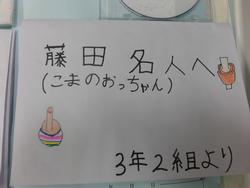 藤田名人へ
(こまのおっちゃん)
3年2組より